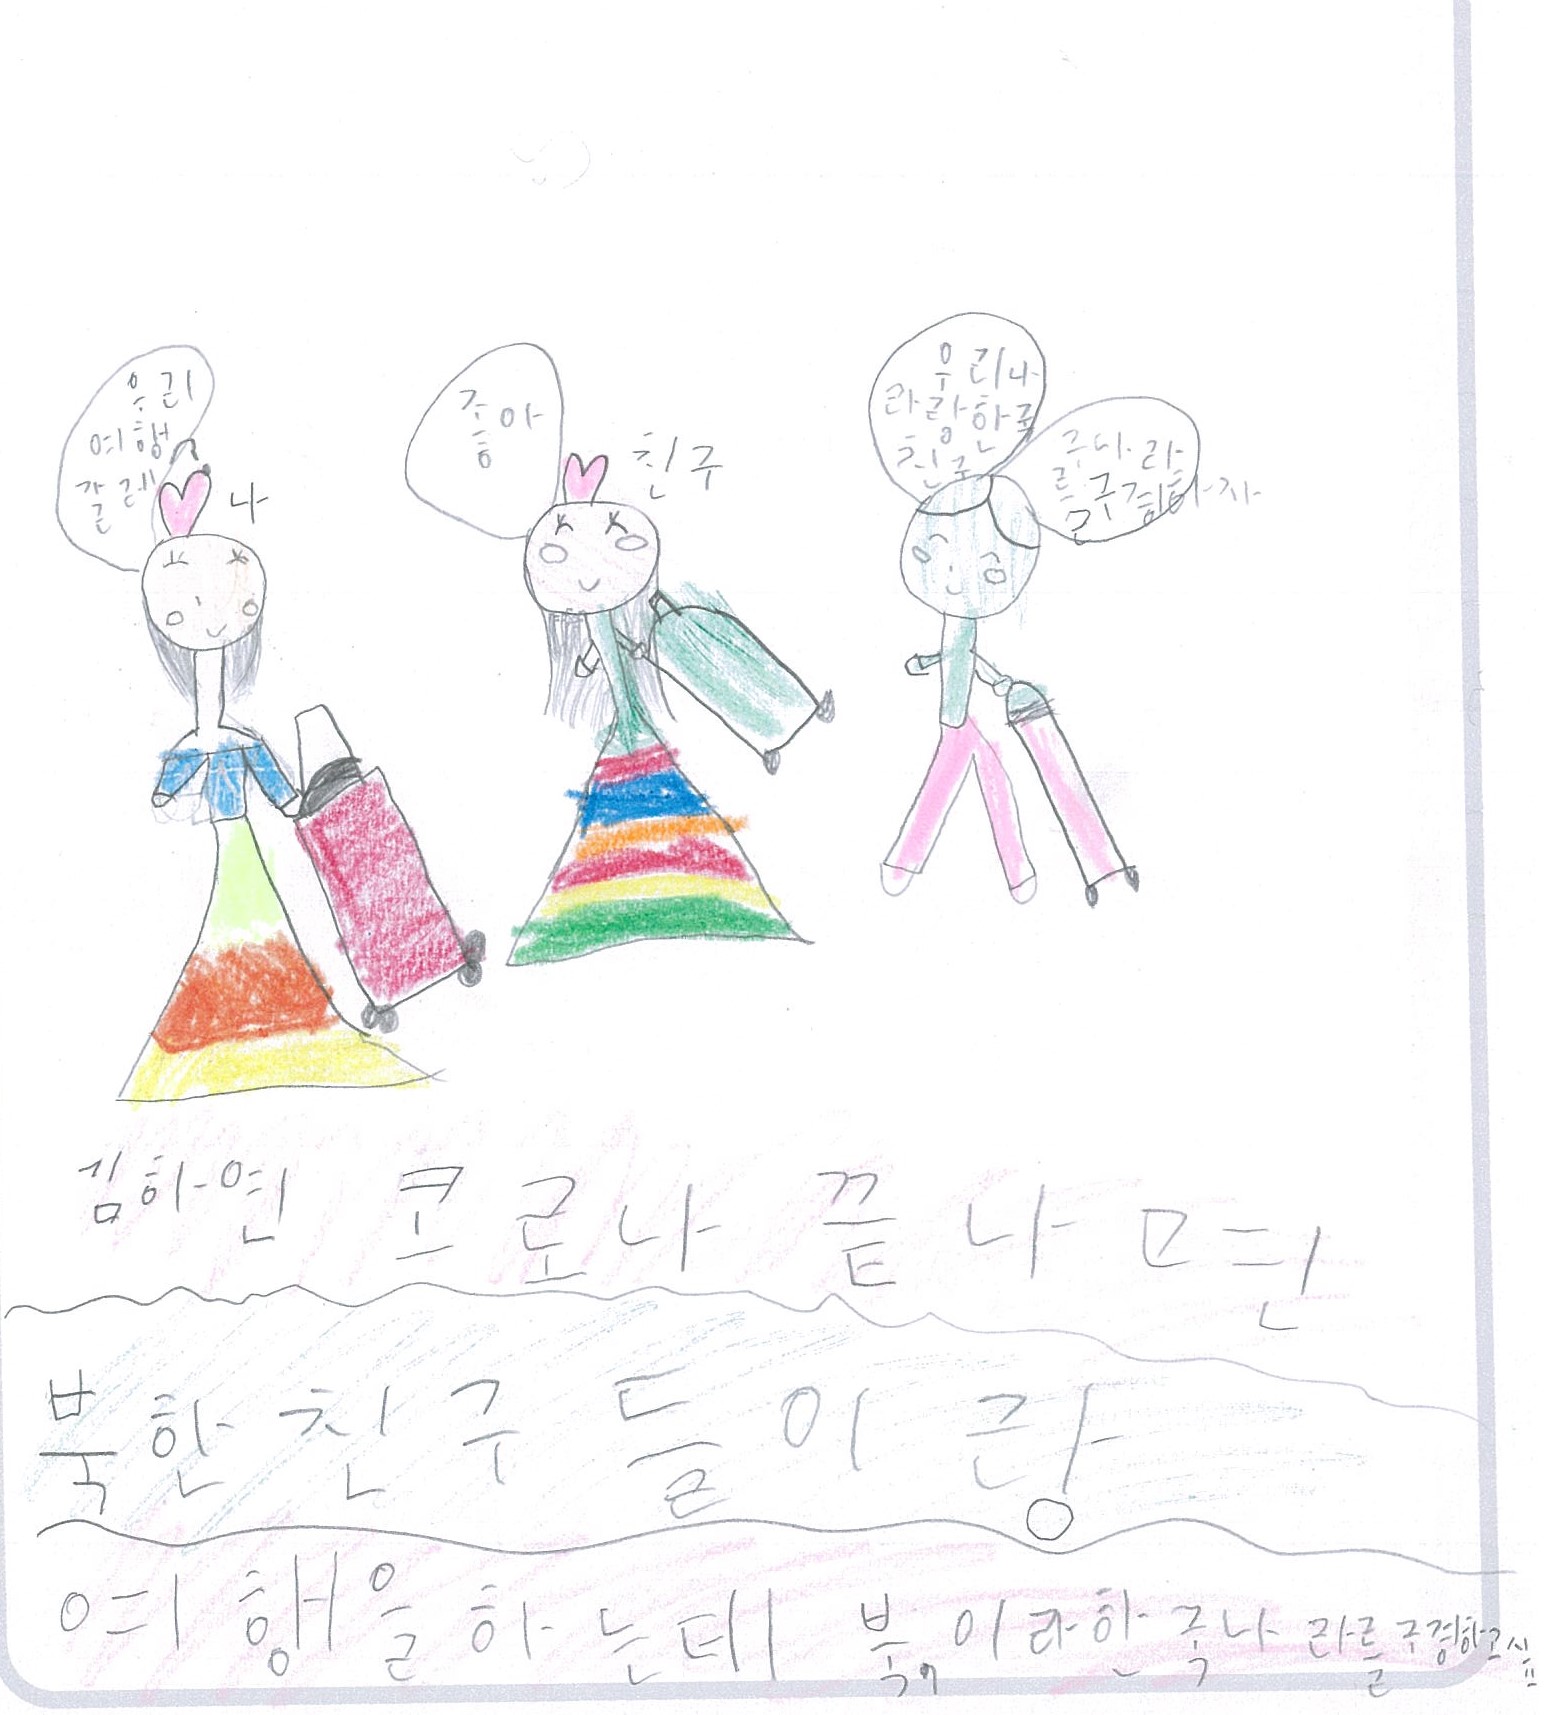 우리
여행
갈레
나
좋아
친구
우리나
라랑한국
친구
구나라
를구경하자
김하연 코로나 끝나면
북한친구들이랑
여행을하는데 북이라한국나라를구경하고싶